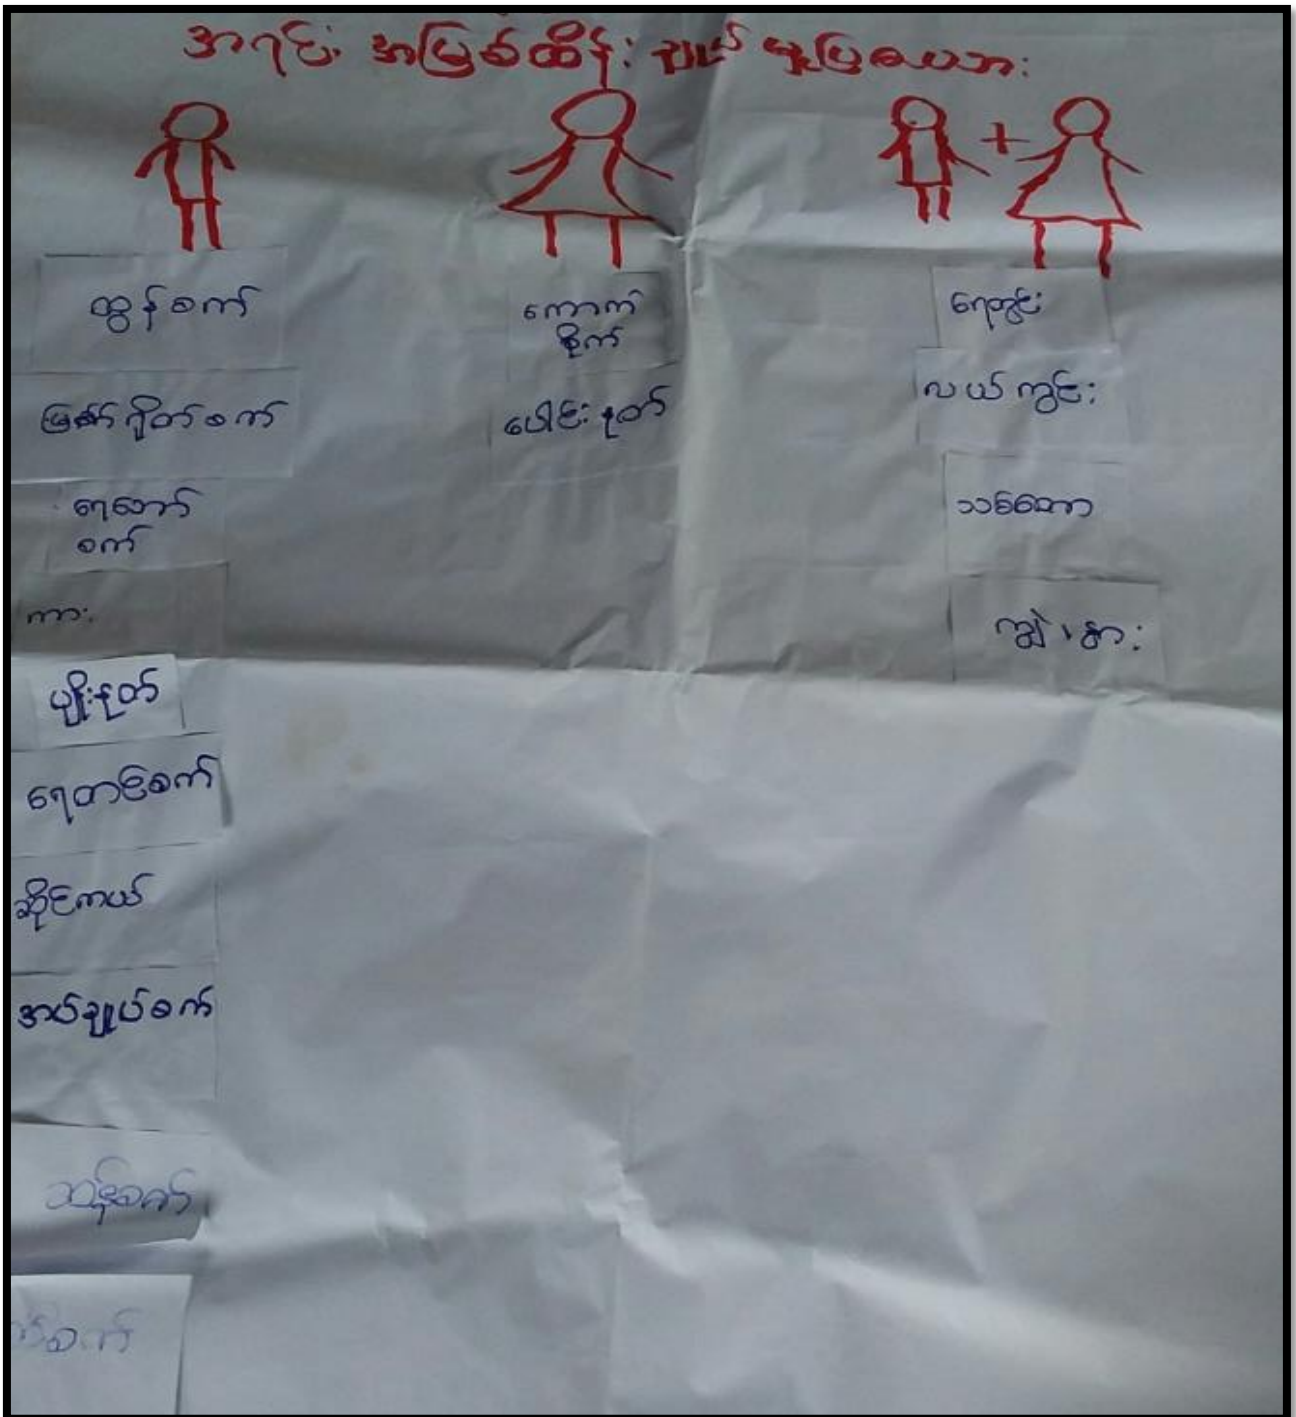 အရင်း အမြစ်ထိန်း ချုပ်
ထွန်စက်
မြက်ရိတ်စက်
ရေမော်
စက်
ကား
မျိုးနုတ်
ရေတင်စက်
ဆိုင်ကယ်
အပ်ချုပ်စက်
ကောက်
စိုက်
ပေါင်းနုတ်
ရေတွင်း
လယ်ကွင်း
သစ်တော
ကျွဲ၊ နွား